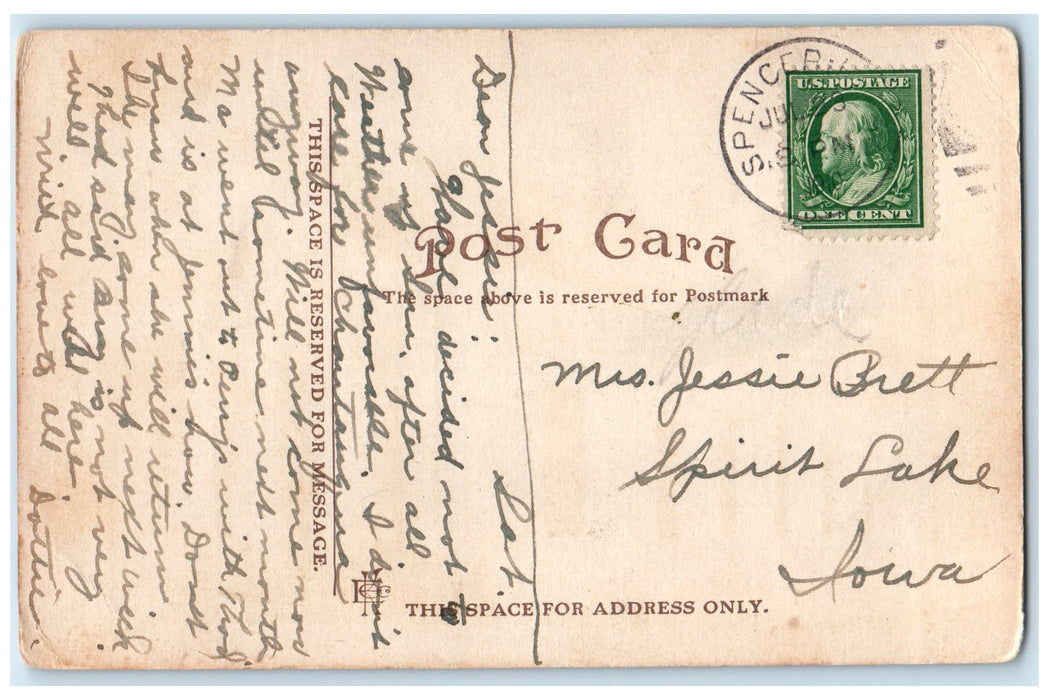 SPENCER, I
JUL
U.S. POSTAGE
ONE CENT
Post Card
The space above is reserved for Postmark
THIS SPACE IS RESERVED FOR MESSAGE.
THIS SPACE FOR ADDRESS ONLY.
Mrs. Jessie Brett
Spirit Lake
Iowa
Sat.
Dear Jessie:
Glad decided not to
come up Sun. after all
Weather unfavorable. I don't
care for Chautauqua
anyway. Will not come now
until sometime next month
Ma went out to with Thod
and is at Jennie's now. Don't
know when she will return.
She may come up next week
Thod said Amy is not very
well all well here
with love to all Dottie.